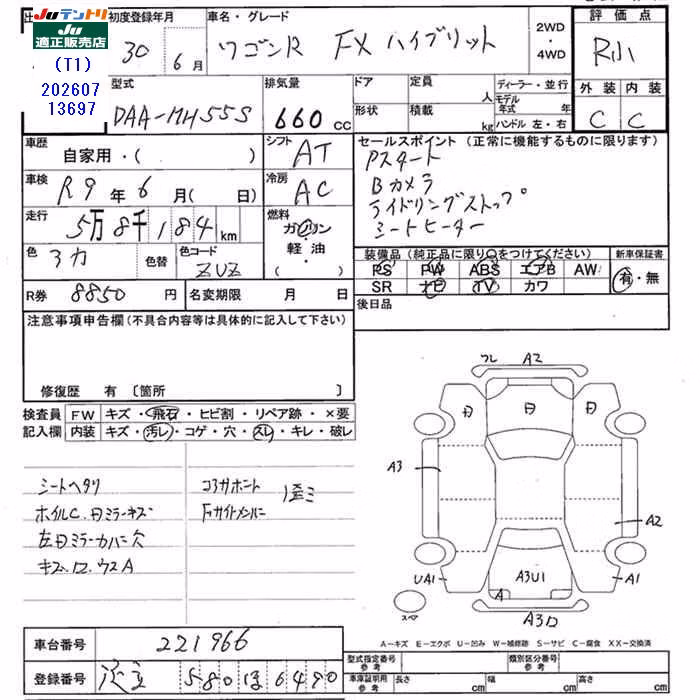 JUテントリ
適正販売店
(T1)
202607
13697
初度登録年月
30 6月
車名・グレード
ワゴンR FX ハイブリット
2WD
・
4WD
評価点
R小
外装 内装
C C
型式
DAA-MH55S
排気量
660 cc
ドア 定員 人
形状 積載 kg
ディーラー・並行
モデル年式 年
ハンドル 左・右
車歴
自家用・( )
シフト
AT
車検
R9年6月( 日)
冷房
AC
走行
5万8千184 km
燃料
ガソリン
軽油・
( )
色 色替
色コード
ZUZ
R券 8850 円
名変期限 月 日
セールスポイント (正常に機能するものに限ります)
Pスタート
Bカメラ
アイドリングストップ
シートヒーター
装備品 (純正品に限り○をつけてください)
新車保証書
PS PW ABS エアB AW
SR ナビ TV カワ
有・無
後日品
注意事項申告欄(不具合内容等は具体的に記入して下さい)
修復歴 有 〔箇所 〕
検査員 FW キズ・飛石・ヒビ割・リペア跡・×要
記入欄 内装 キズ・汚レ・コゲ・穴・スレ・キレ・破レ
シートヘタリ
コアサポート
ホイルC
左
ミラーカバー穴
フレ A2
A3
A2
UA1
A3U1
A1
A
スペア
A-キズ E-エクボ U-凹み W-補修跡 S-サビ C-腐食 XX-交換済
車台番号 221966
登録番号 580 ほ 6490
型式指定番号
参考
類別区分番号
参考
車庫証明用
参考
長さ cm 幅 cm 高さ cm